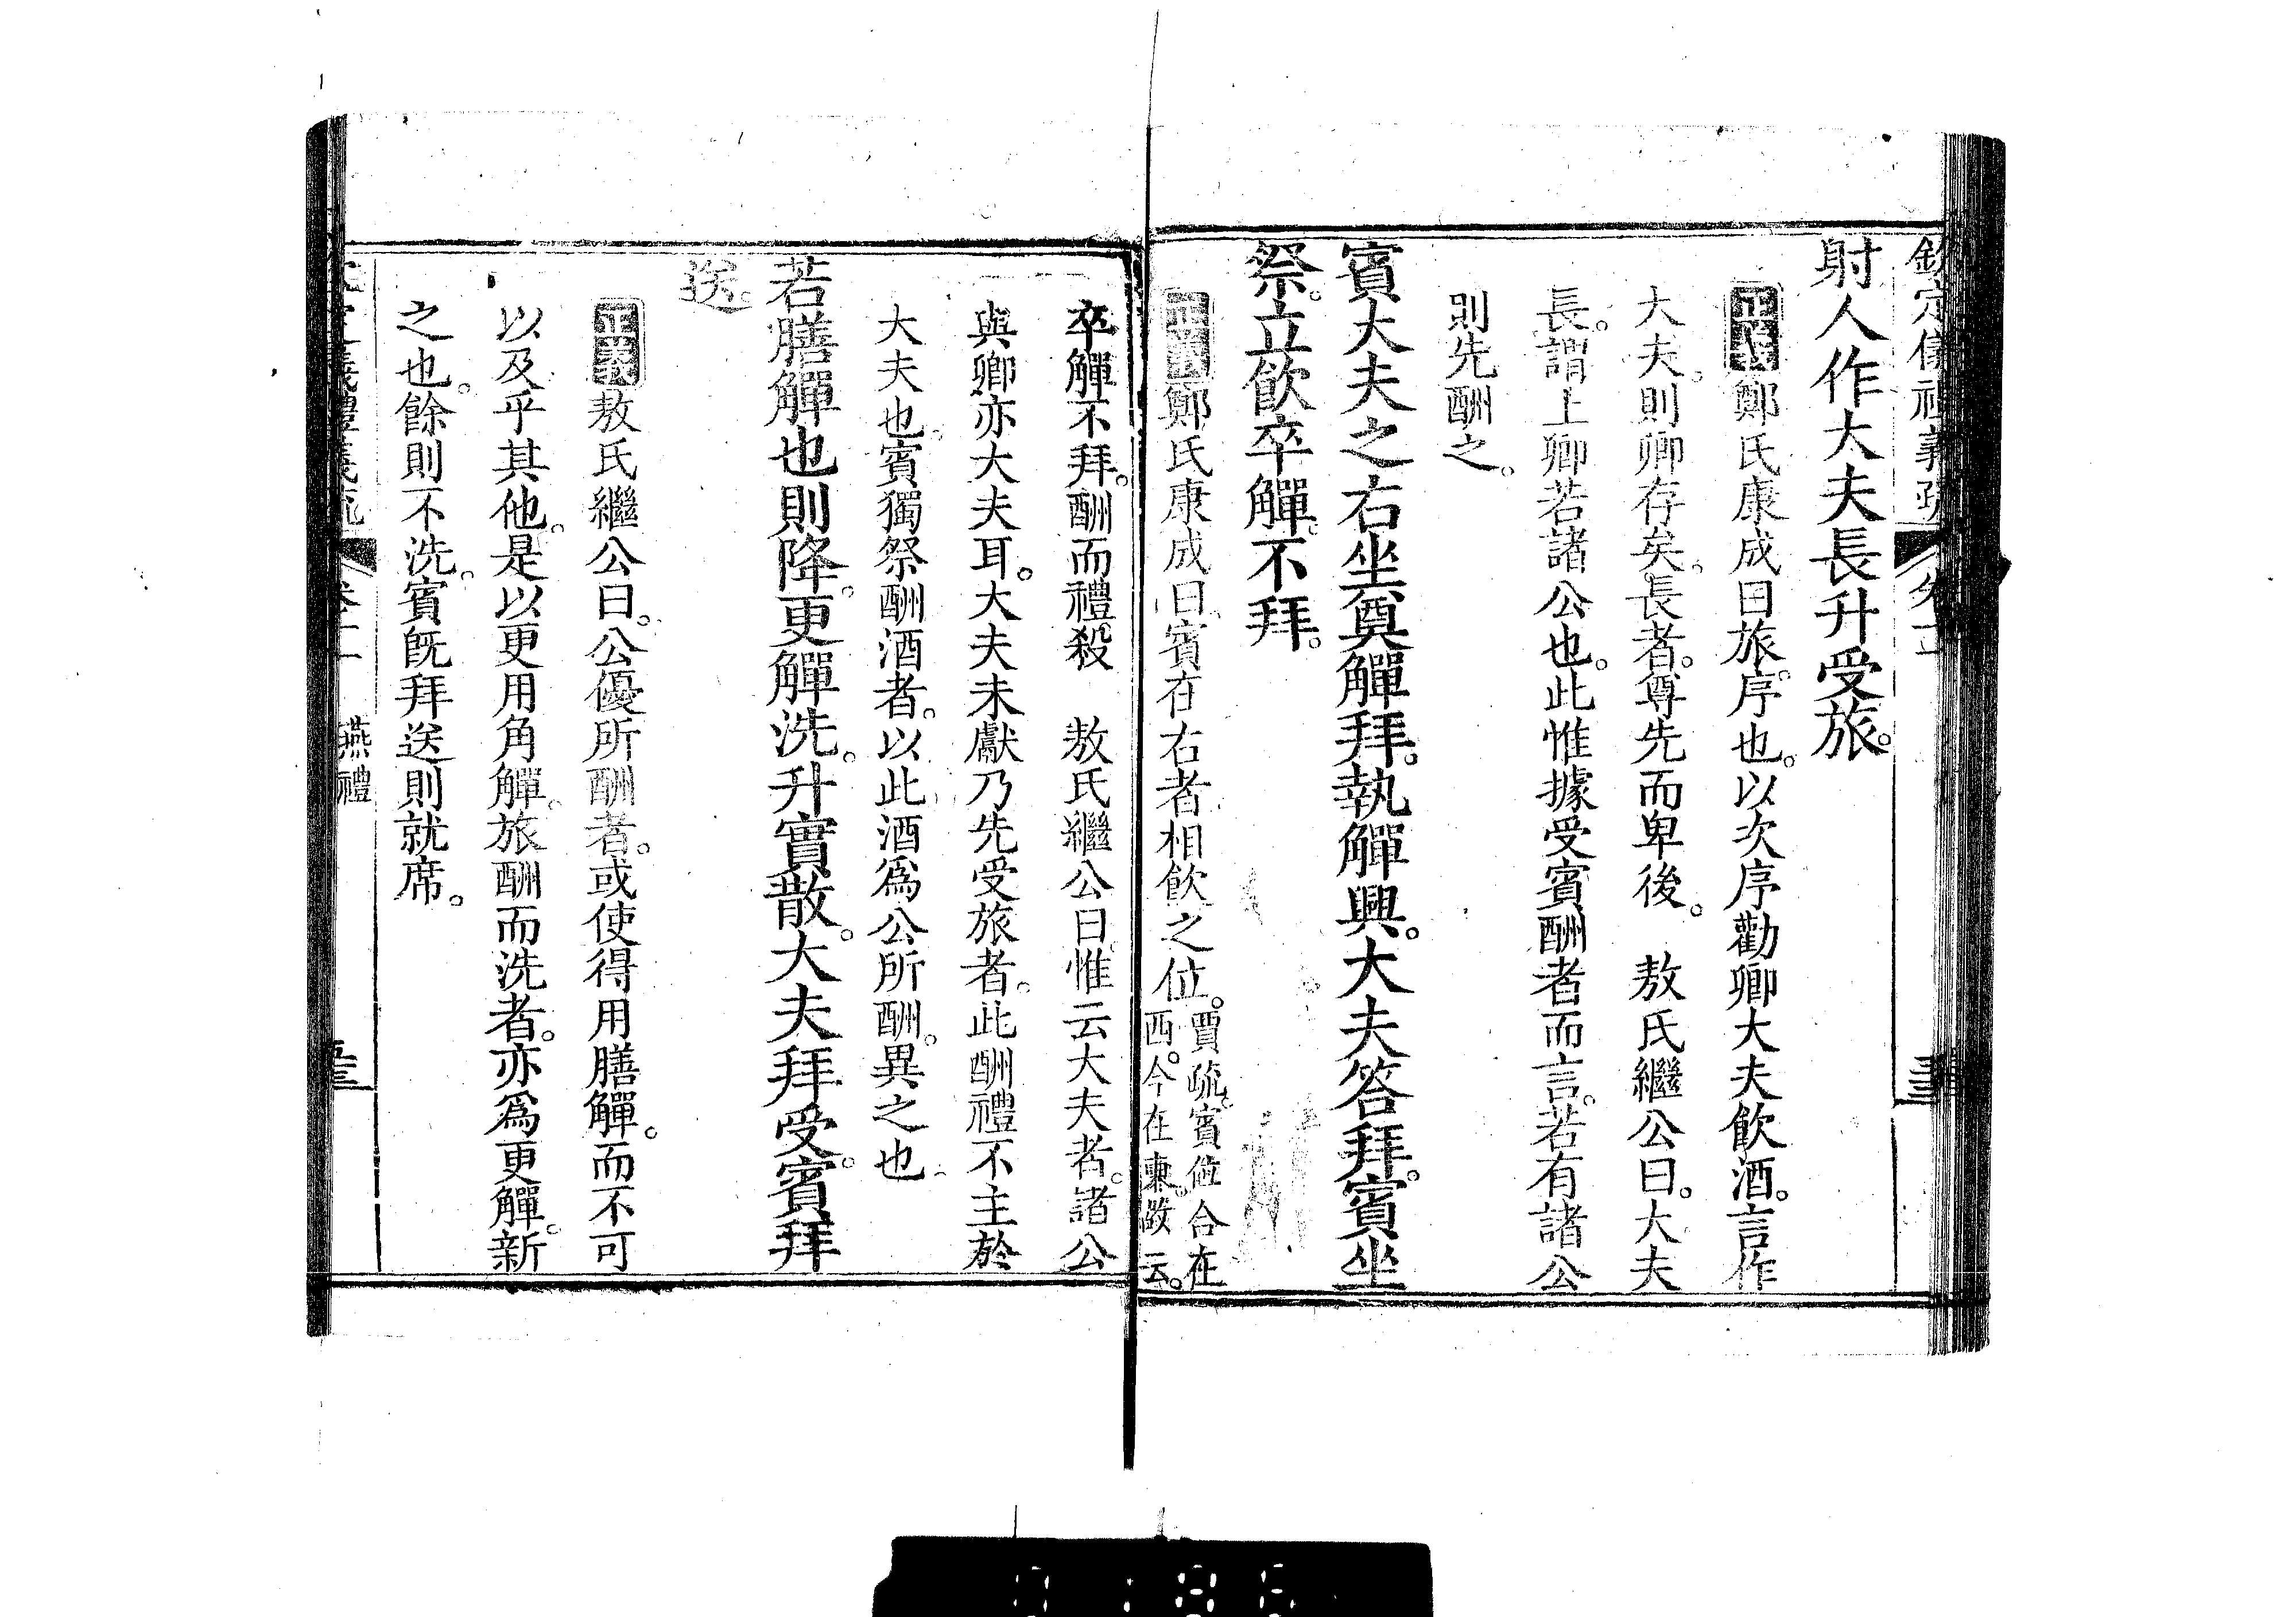 欽定儀禮義疏
射人作大夫長升受旅。
正義鄭氏康成曰旅。序也。以次序勸卿大夫飲酒。言作
大夫。則卿存矣。長者。尊先而卑後。 敖氏繼公曰。大夫
長。謂上卿若諸公也。此惟據受賓酬者而言。若有諸公
則先酬之。
賓大夫之右坐奠觶拜。執觶興。大夫答拜。賓坐
祭。立飲卒觶。不拜。
正義鄭氏康成曰。賓在右者相飲之位。賈疏。賓位合在
西。今在東。故云。
卒觶不拜。酬而禮殺 敖氏繼公曰惟云大夫者。諸公
與卿亦大夫耳。大夫未獻乃先受旅者。此酬禮不主於
大夫也。賓獨祭酬酒者。以此酒爲公所酬。異之也
若膳觶也則降。更觶洗。升實散。大夫拜受。賓拜
送。
正義敖氏繼公曰。公優所酬者。或使得用膳觶。而不可
以及乎其他。是以更用角觶。旅酬而洗者。亦爲更觶。新
之也。餘則不洗。賓既拜送則就席。
燕禮